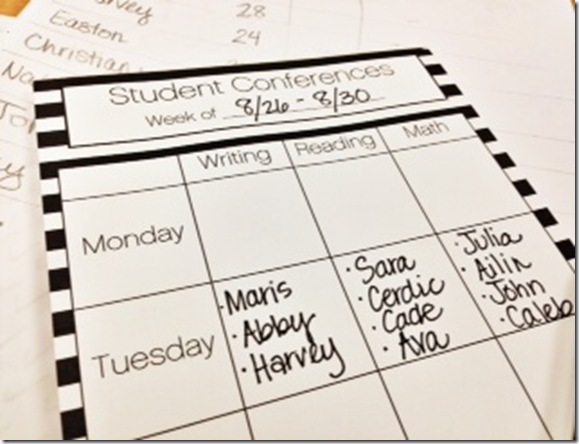 28
Easton 24
Christian
Student Conferences
Week of 8/26 - 8/30
Writing Reading Math
Monday
Tuesday
· Maris
· Abby
· Harvey
· Sara
· Cerdic
· Cade
· Ava
· Julia
· Ailin
· John
· Caleb